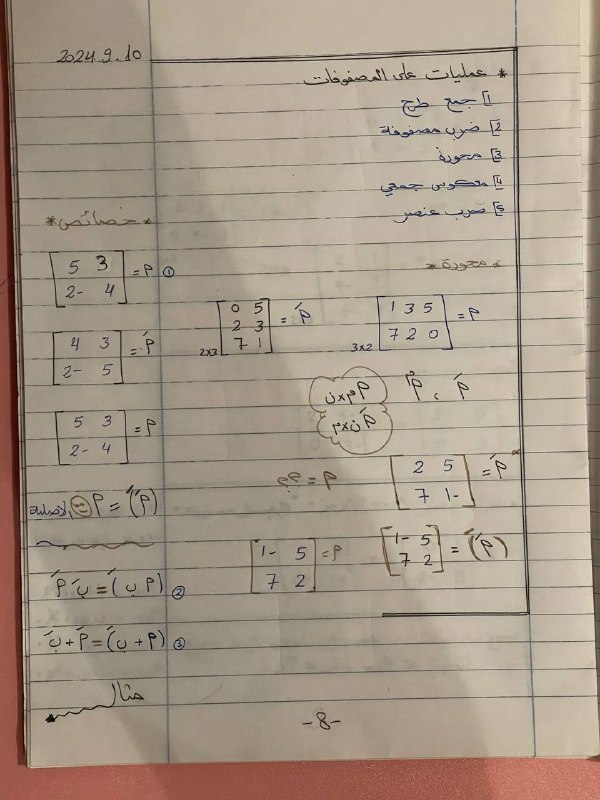 2024.9.10
* عمليات على المصفوفات
1] جمع طرح
2] ضرب مصفوفة
3] محورة
4] معكوس جمعي
5] ضرب عنصر
* محورة *
م =
1 3 5
7 2 0
3x2
م́ =
0 5
2 3
7 1
2x3
م́ ، م
م م×ن
م́ ن×م
م́ =
2 5
7 1-
م = ؟؟
(م́)́ =
1- 5
7 2
م =
1- 5
7 2
* خصائص *
① م =
5 3
2- 4
م́ =
4 3
2- 5
م =
5 3
2- 4
(م́)́ = م الأصلية
② (م ب)́ = ب́ م́
③ (م + ب)́ = م́ + ب́
مثال
-8-